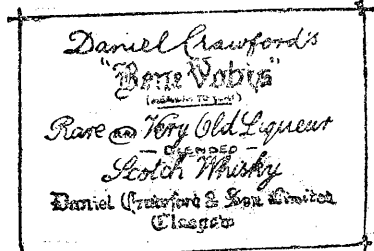 Daniel Crawford's
"Bene Vobis"
Rare and Very Old Liqueur
BLENDED
Scotch Whisky
Daniel Crawford & Son Limited
Glasgow